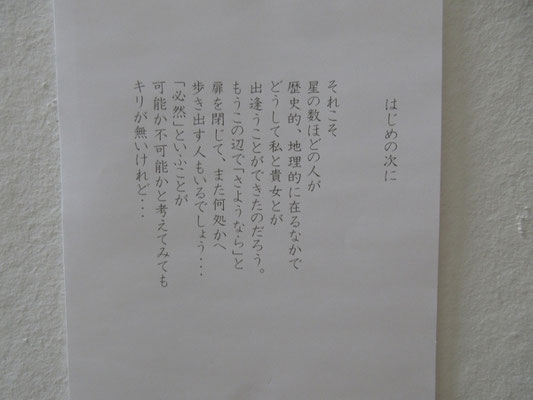 はじめの次に
それこそ
星の数ほどの人が
歴史的、地理的に在るなかで
どうして私と貴女とが
出逢うことができたのだろう。
もうこの辺で「さようなら」と
扉を閉じて、また何処かへ
歩き出す人もいるでしょう・・・
「必然」といふことが
可能か不可能かと考えてみても
キリが無いけれど・・・